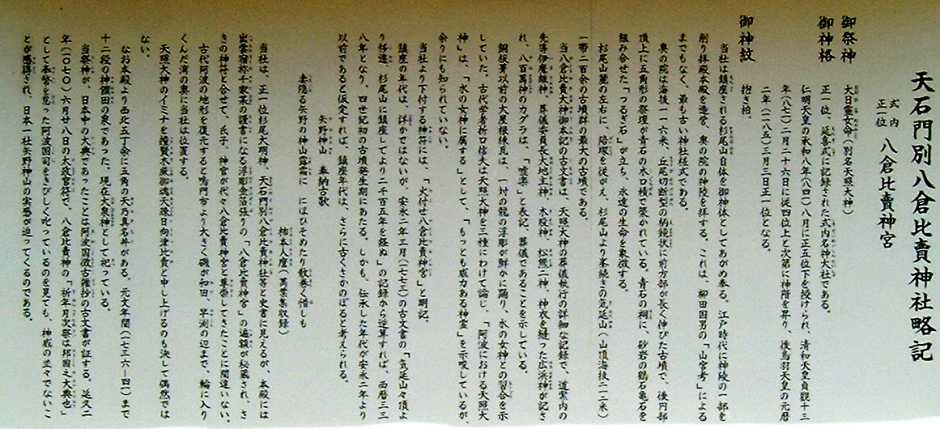 天石門別八倉比賣神社略記
式内
正一位 八倉比賣神宮
御祭神
大日靈女命(別名天照大神)
御神格
正一位、延喜式に記録された式内名神大社である。
仁明天皇の承和八年(八四一)八月に正五位下を授けられ、清和天皇貞觀十三
年(八七一)二月二十六日に従四位上と次第に神階を昇り、後鳥羽天皇の元暦
二年(一一八五)三月三日正一位となる。
御神紋
抱き柏。
当社は鎮座される杉尾山自体を御神体としてあがめ奉る。江戸時代に神陵の一部を
削り拝殿本殿を造営、奥の院の神陵を拝する。これは、柳田国男の「山宮考」による
までもなく、最も古い神社様式である。
奥の院は海抜一一六米、丘尾切断型の柄鏡状に前方部が長く伸びた古墳で、後円部
頂上に五角形の祭壇が青石の木口積で築かれている。青石の祠に、砂岩の鶴石亀石を
組み合せた「つるぎ石」が立ち、永遠の生命を象徴する。
杉尾山麓の左右に、陪塚を従がえ、杉尾山より峯続きの気延山(山頂海抜二一二米)
一帯二百余の古墳群の最大の古墳である。
当八倉比賣大神御本記の古文書は、天照大神の葬儀執行の詳細な記録で、道案内の
先導伊魔離神、葬儀委員長大地主神、木股神、松熊二神、神衣を縫った広浜神が記さ
れ、八百萬神のカグラは、「嘘楽」と表記、葬儀であることを示している。
銅板葺以前の大屋根棟瓦は、一対の龍の浮彫が鮮かに踊り、水の女神との習合を示
していた。古代学者折口信夫は天照大神を三種にわけて論じ、「阿波における天照大
神」は、「水の女神に属する」として、「もっとも威力ある神霊」を示唆しているが、
余りにも知られていない。
当社より下付する神符には、「火付せ八倉比賣神宮」と明記。
鎮座の年代は、詳かではないが、安永二年三月(一七七三)の古文書の「気延山々頂よ
り移遷、杉尾山に鎮座してより二千百五年を経ぬ」の記録から逆算すれば、西暦三三
八年となり、四世紀初の古墳発生期にあたる。しかも、伝承した年代が安永二年より
以前であると仮定すれば、鎮座年代は、さらに古くさかのぼると考えられる。
矢野神山 奉納古歌
妻隠る矢野の神山露霜に にほひそめたり散巻く惜しも
柿本人麿(萬葉集収録)
当社は、正一位杉尾大明神、天石門別八倉比賣神社等と史書に見えるが、本殿には
出雲宿祢千家某の謹書になる浮彫金箔張りの「八倉比賣神宮」の遍額が秘蔵され、さ
きの神符と合せて、氏子、神官が代々八倉比賣神宮と尊崇してきたことに間違いない。
古代阿波の地形を復元すると鳴門市より大きく磯が和田、早渕の辺まで、輪に入り
くんだ湾の奥に当社は位置する。
天照大神のイミナを撞賢木厳御魂天疎日向津比賣と申し上げるのも決して偶然では
ない。
なお本殿より西北五丁余に五角の天乃真名井がある。元文年間(一七三六―四一)まで
十二段の神饌田の泉であった。現在大泉神として祀っている。
当祭神が、日本中の大典であったことは阿波国徴古雑抄の古文書が証する。延久二
年(一〇七〇)六月廿八日の太政官符で、八倉比賣神の「祈年月次祭は邦国之大典也」
として奉幣を怠った阿波国司をきびしく叱っているのを見ても、神威の並々でないこ
とが感得され、日本一社矢野神山の実感が迫ってくるのである。